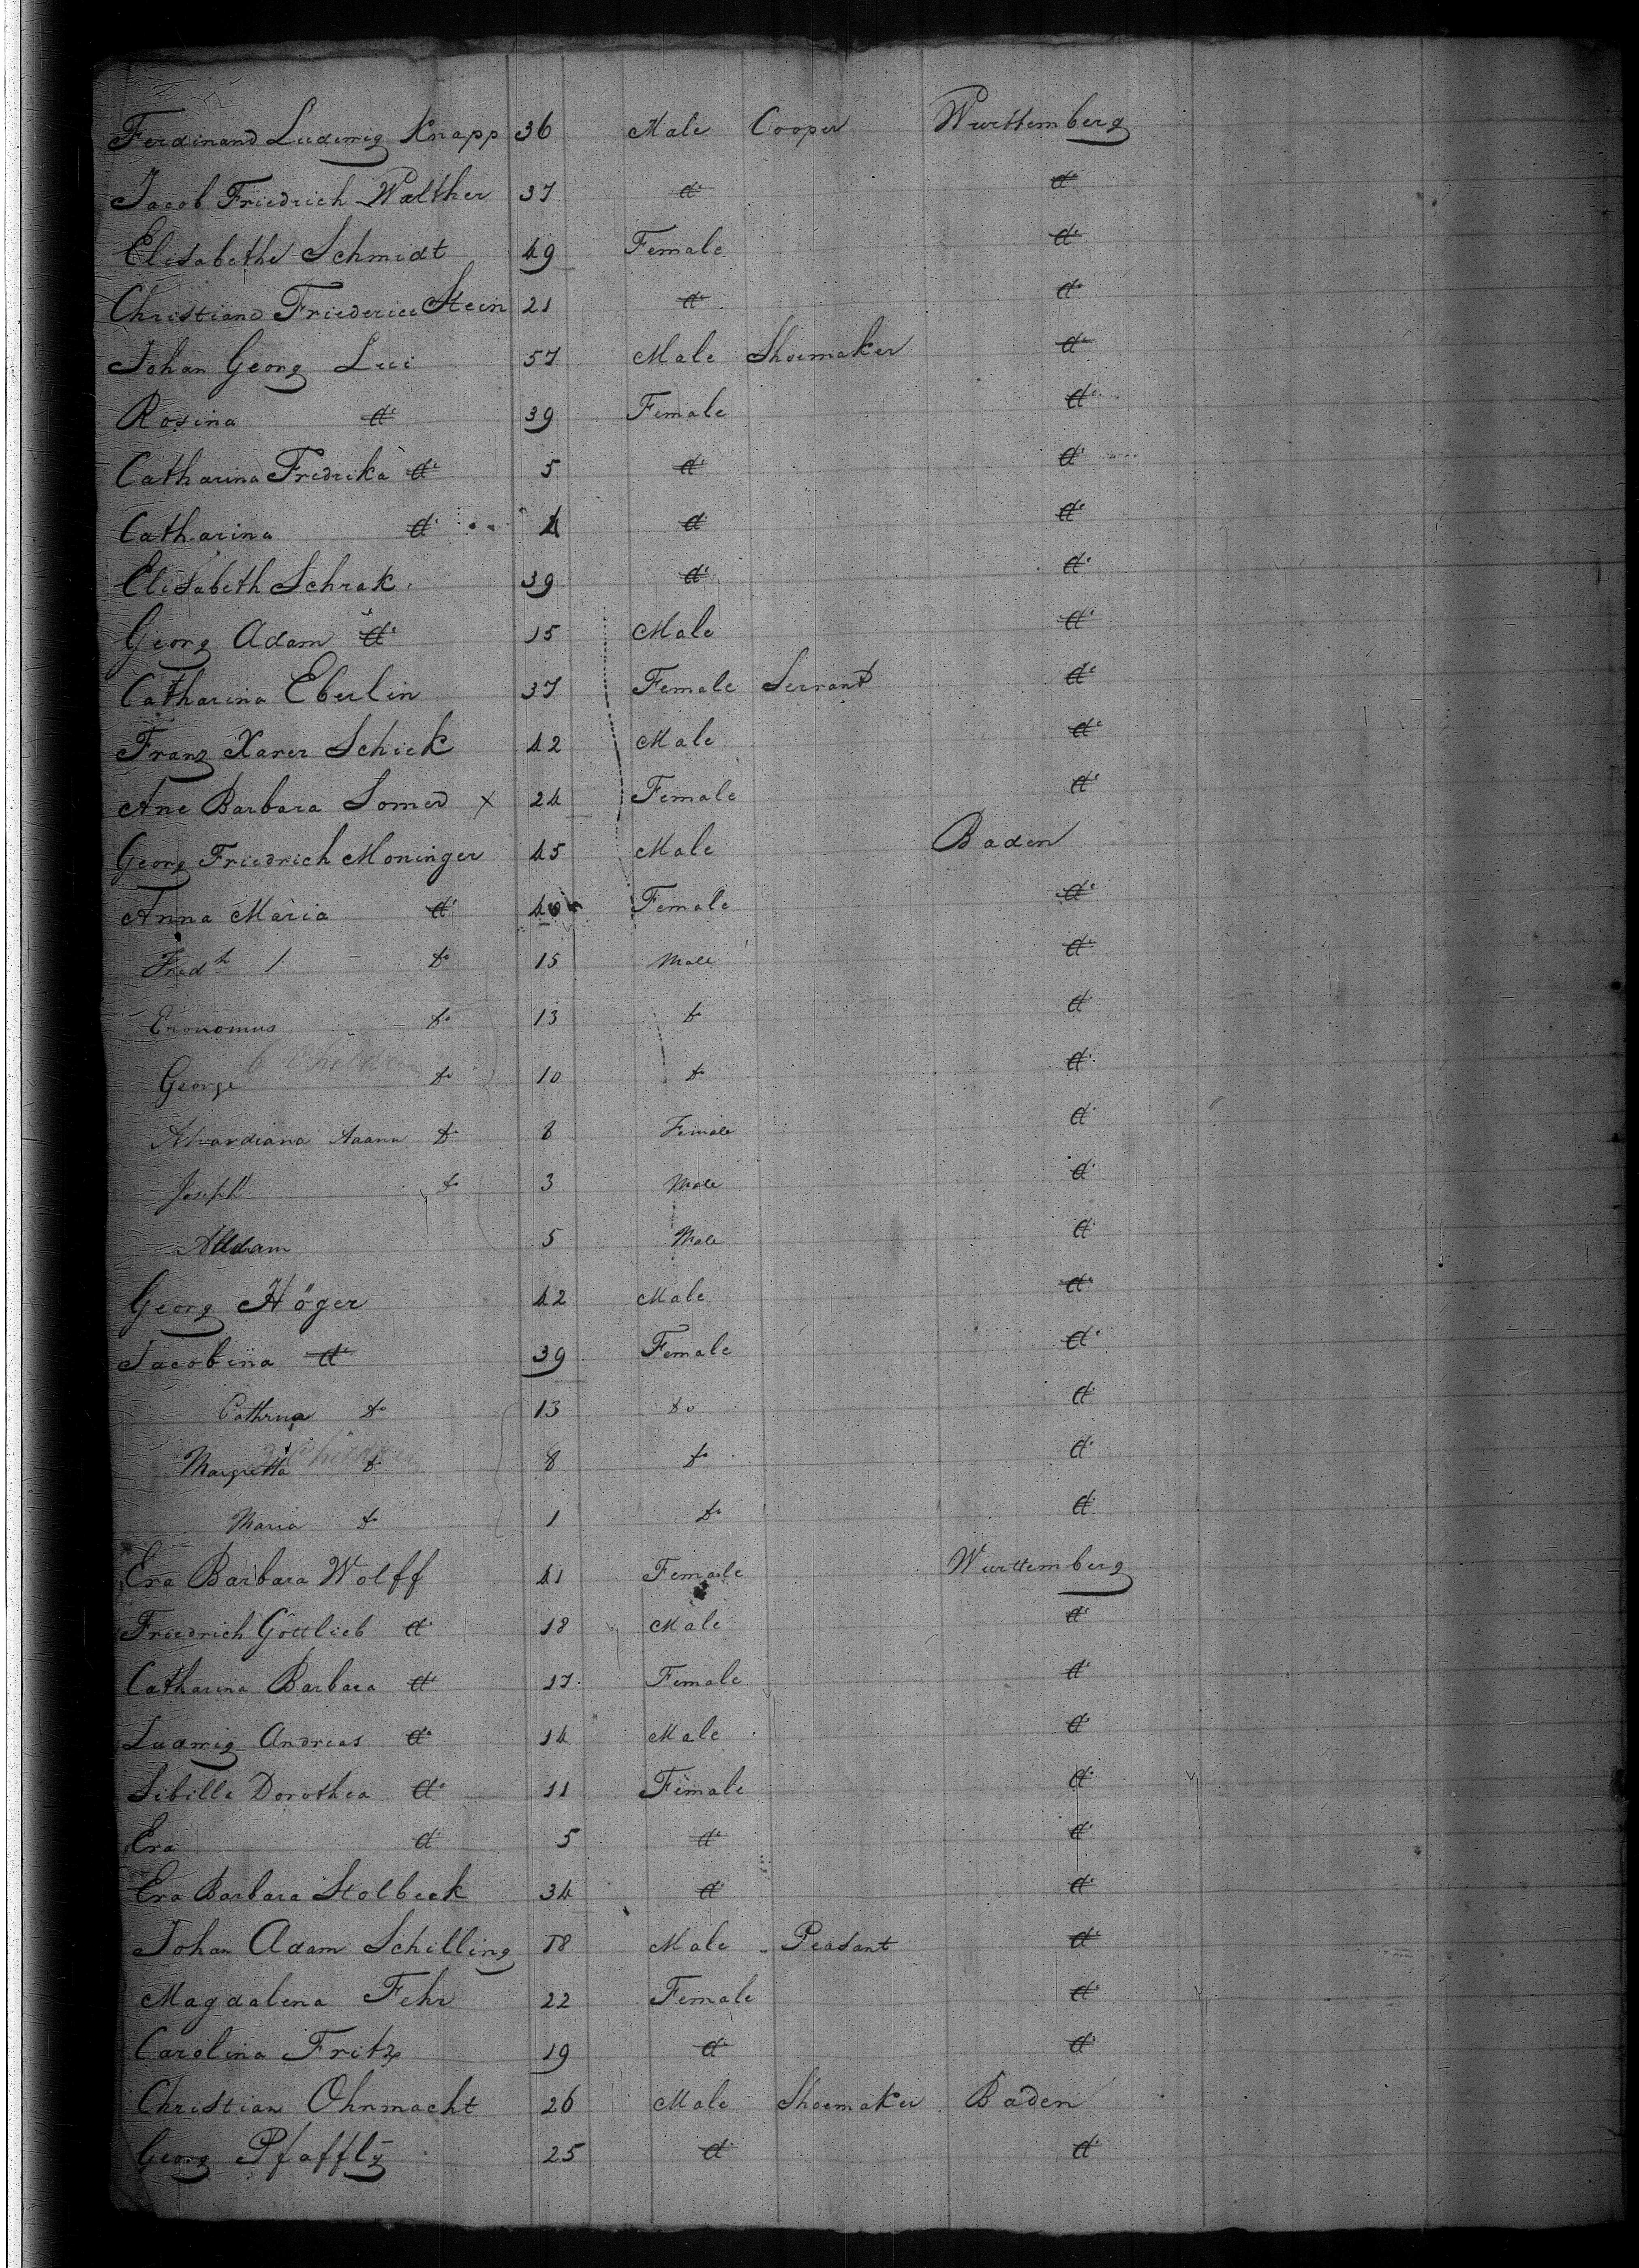 Ferdinand Ludewig Knapp 36 Male Cooper Wurttemberg
Jacob Friedrich Walther 37 do do
Elisabethe Schmidt 49 Female do
Christiane Friederice Stein 21 do do
Johan Georg Lui 57 Male Shoemaker do
Rosina do 39 Female do
Catharina Fredrika do 5 do do
Catharina do 4 do do
Elisabeth Schrak 39 do do
Georg Adam do 15 Male do
Catharina Eberlin 37 Female Servant do
Franz Xaver Schick 42 Male do
Ane Barbara Somer x 24 Female do
Georg Friedrich Moninger 45 Male Baden
Anna Maria do 40 Female do
Fredk 1 do 15 Male do
do 13 do do
6 Children
George do 10 do do
do 8 Female do
Joseph do 3 Male do
Addam 5 Male do
Georg Höger 42 Male do
Jacobina do 39 Female do
Cathrina do 13 do do
3 Children
Margretta do 8 do do
Maria do 1 do do
Eva Barbara Wolff 41 Female Wurttemberg
Friedrich Gottlieb do 18 Male do
Catharina Barbara do 17 Female do
Ludwig Andreas do 14 Male do
Sibilla Dorothea do 11 Female do
Eva do 5 do do
Eva Barbara Stolbeck 34 do do
Johan Adam Schilling 18 Male Peasant do
Magdalena Fehr 22 Female do
Carolina Fritz 19 do do
Christian Ohnmacht 26 Male Shoemaker Baden
Georg Pfaffly 25 do do